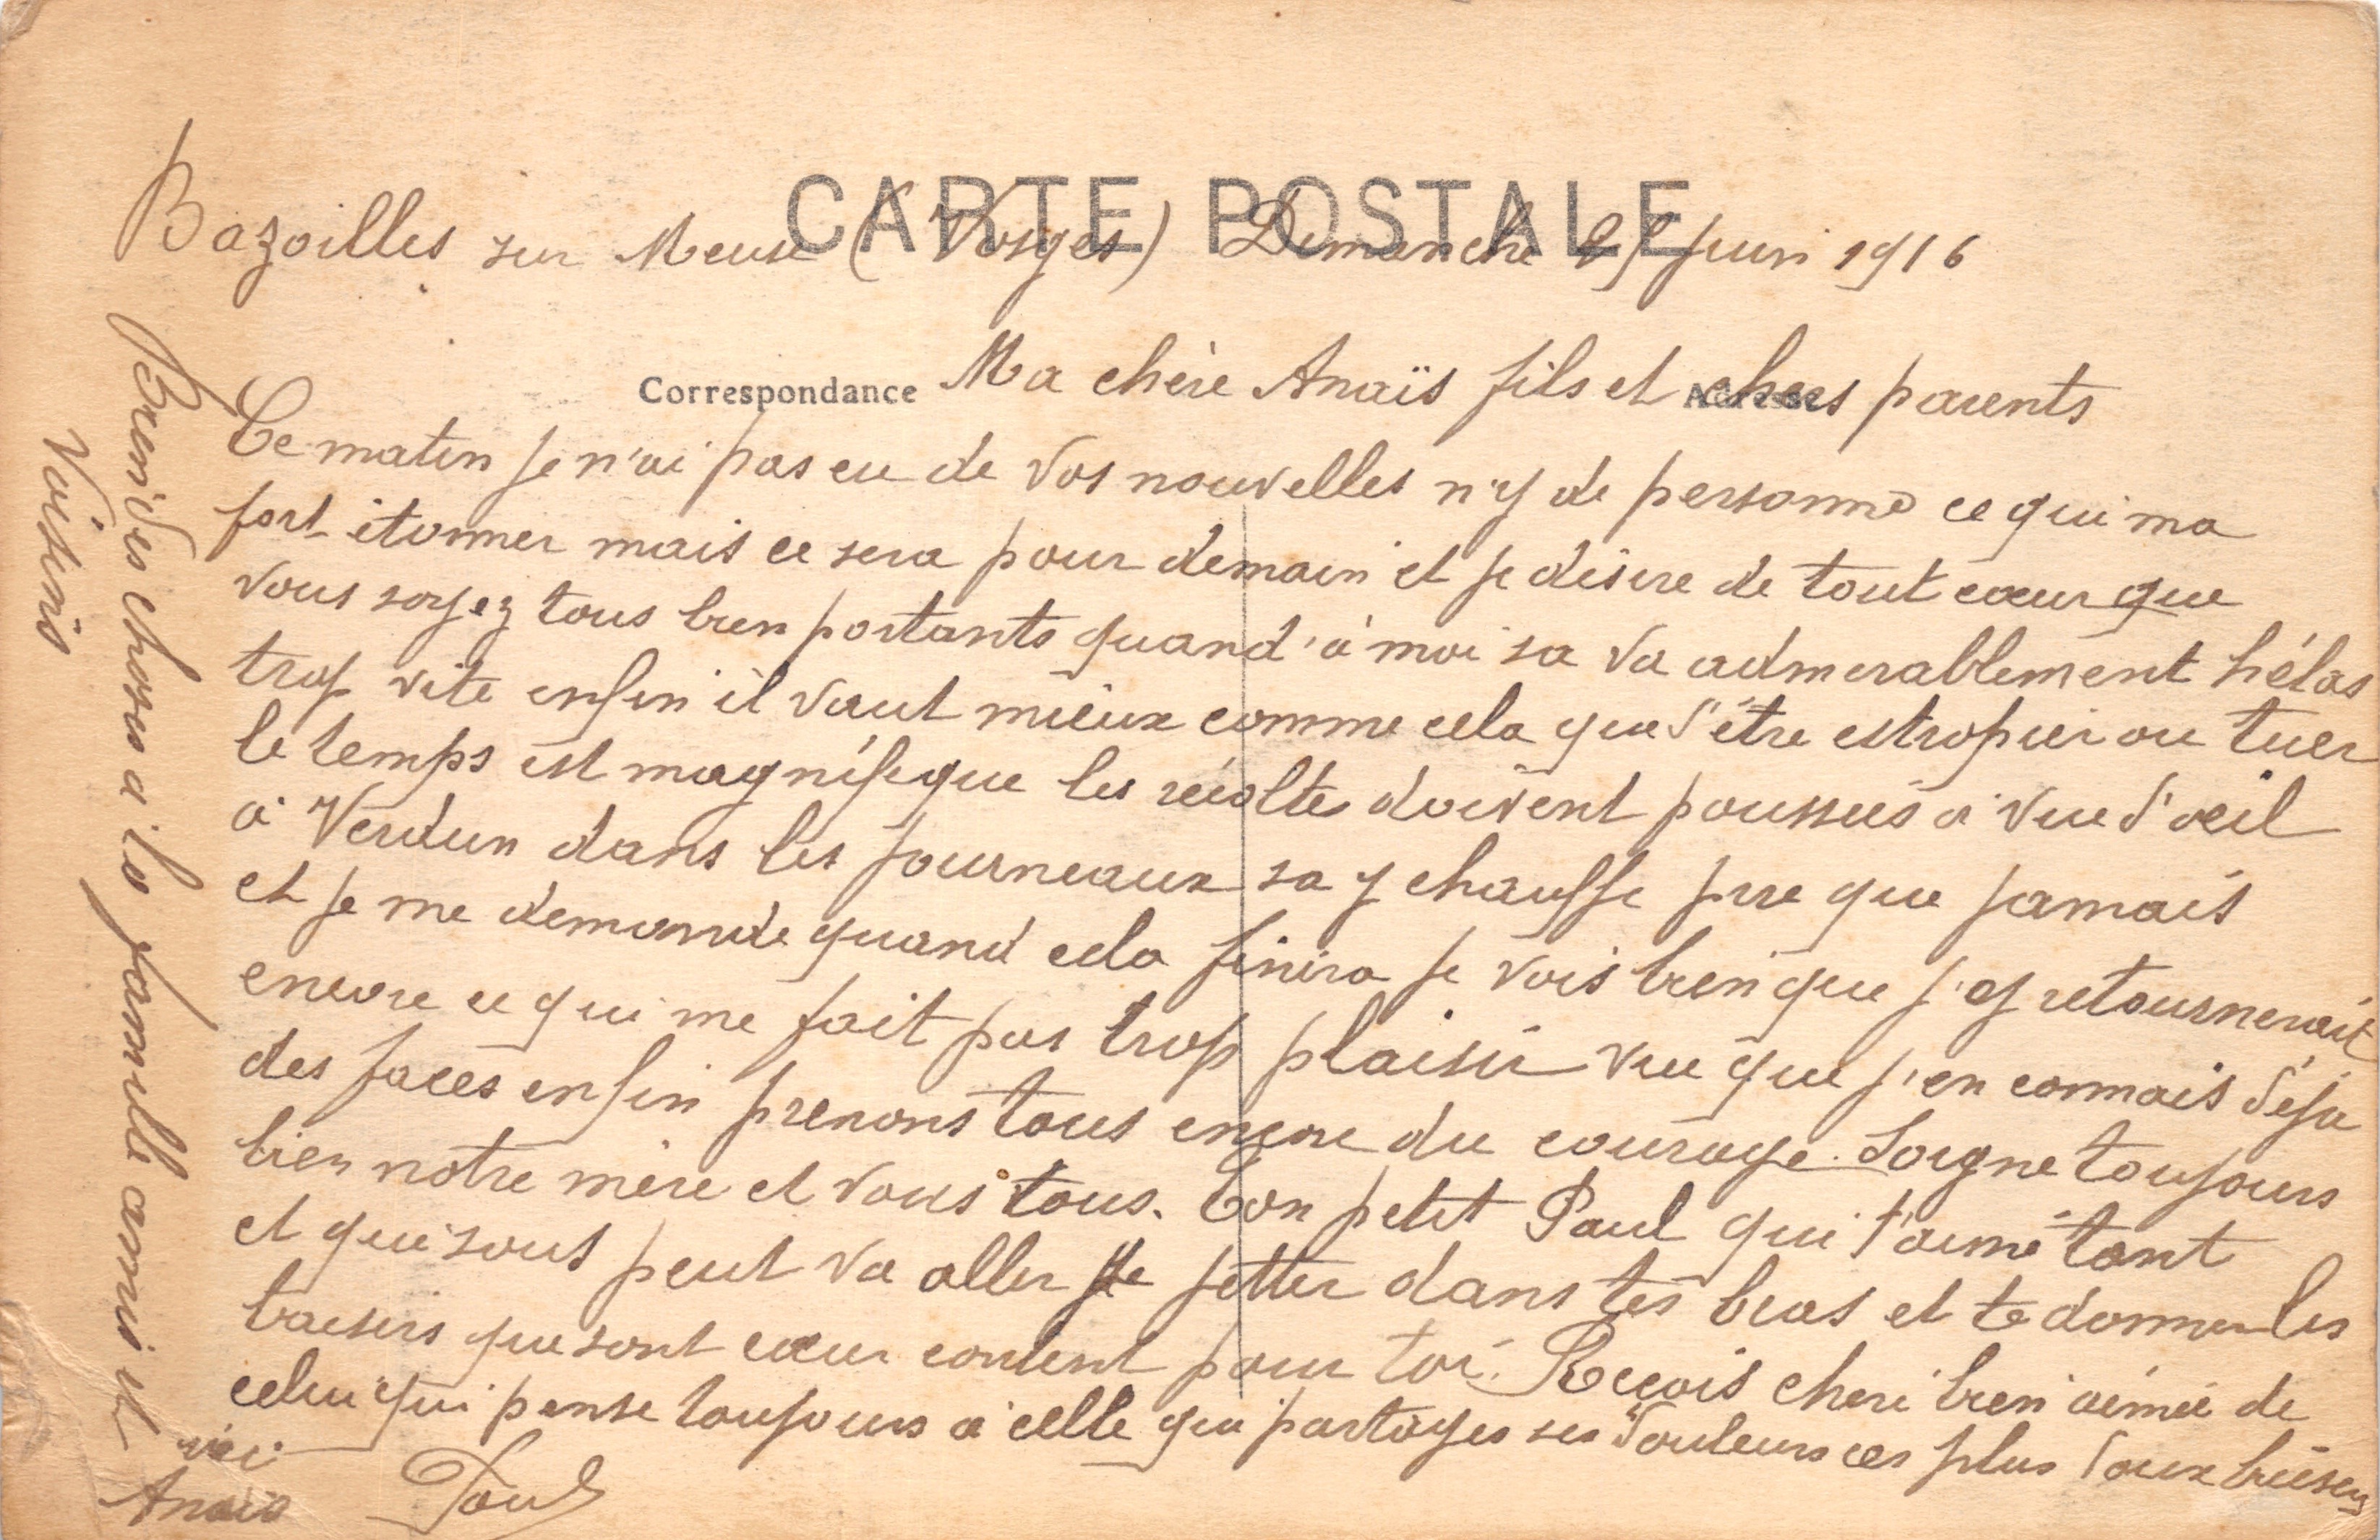 CARTE POSTALE
Bazoilles sur Meuse (Vosges) Dimanche 25 Juin 1916
Correspondance
Ma chère Anaïs fils et chers parents
Ce matin je n'ai pas eu de vos nouvelles n'y de personne ce qui ma
fort étonner mais ce sera pour demain et je désire de tout cœur que
vous soyez tous bien portants quand'à moi sa va admirablement hélas
trop vite enfin il vaut mieux comme cela que d'être estropier ou tuer
le temps est magnifique les récoltes doivent poussées à vue d'œil
à Verdun dans les journeaux sa y chauffe pire que jamais
et je me demande quand cela finira je vois bien que j'y retournerait
encore ce qui me fait pas trop plaisir vue que j'en connais déja
des faces enfin prenons tous encore du courage. Soigne toujours
bien notre mère et vous tous. Ton petit Paul qui t'aime tant
et qui sous peut va aller se jetter dans tes bras et te donner les
baisers que sont cœur contient pour toi. Reçois cheri bien aimée de
celui qui pense toujours à celle qui partages ses douleurs ces plus doux baisers
Paul
Bien des choses a la famille amis et
Voisins
Anaïs